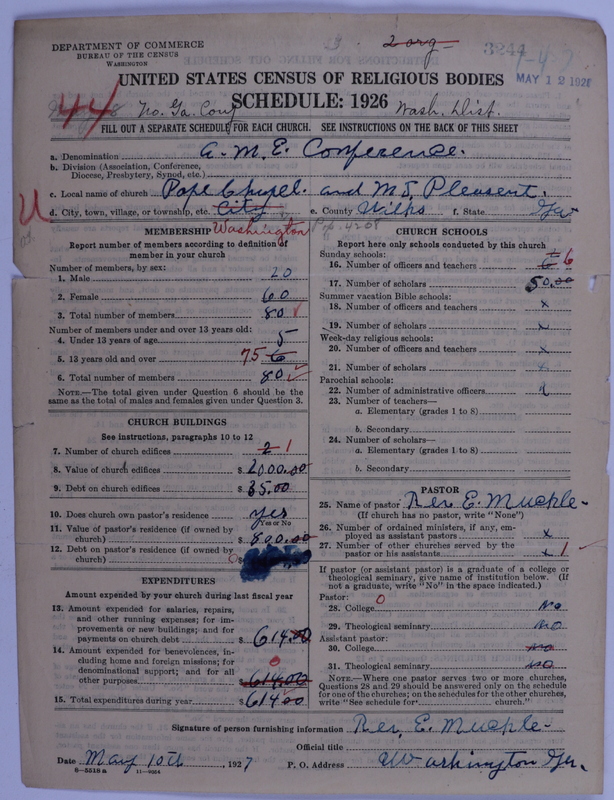 2 org
3244
7-4-57
DEPARTMENT OF COMMERCE
BUREAU OF THE CENSUS
WASHINGTON
MAY 12 192
UNITED STATES CENSUS OF RELIGIOUS BODIES
SCHEDULE: 1926
44 No. Ga. Conf Wash. Dist.
FILL OUT A SEPARATE SCHEDULE FOR EACH CHURCH. SEE INSTRUCTIONS ON THE BACK OF THIS SHEET
a. Denomination A. M. E. Conference.
b. Division (Association, Conference, Diocese, Presbytery, Synod, etc.)
c. Local name of church Pope Chapel. and Mt. Pleasent.
U d. City, town, village, or township, etc. City e. County Wilks f. State Ga
Washington Pop. 4208
MEMBERSHIP
Report number of members according to definition of member in your church
Number of members, by sex:
1. Male 20
2. Female 60
3. Total number of members 80 ✓
Number of members under and over 13 years old:
4. Under 13 years of age 5
5. 13 years old and over 75 6
6. Total number of members 80 ✓
NOTE.—The total given under Question 6 should be the same as the total of males and females given under Question 3.
CHURCH BUILDINGS
See instructions, paragraphs 10 to 12
7. Number of church edifices 2 1
8. Value of church edifices $ 2000.00
9. Debt on church edifices $ 35.00
10. Does church own pastor's residence yes
Yes or No
11. Value of pastor's residence (if owned by church) $ 800.00
12. Debt on pastor's residence (if owned by church) 0 $
EXPENDITURES
Amount expended by your church during last fiscal year
13. Amount expended for salaries, repairs, and other running expenses; for improvements or new buildings; and for payments on church debt $ 614.00
14. Amount expended for benevolences, including home and foreign missions; for denominational support; and for all other purposes 0 $ 614.00
15. Total expenditures during year $ 614.00
CHURCH SCHOOLS
Report here only schools conducted by this church
Sunday schools:
16. Number of officers and teachers 6 6
17. Number of scholars 50.00
Summer vacation Bible schools:
18. Number of officers and teachers x
19. Number of scholars x
Week-day religious schools:
20. Number of officers and teachers x
21. Number of scholars x
Parochial schools:
22. Number of administrative officers x
23. Number of teachers—
a. Elementary (grades 1 to 8)
b. Secondary
24. Number of scholars—
a. Elementary (grades 1 to 8)
b. Secondary
PASTOR
25. Name of pastor Rev. E. Muckle
(If church has no pastor, write "None")
26. Number of ordained ministers, if any, employed as assistant pastors x
27. Number of other churches served by the pastor or his assistants x 1 ✓
If pastor (or assistant pastor) is a graduate of a college or theological seminary, give name of institution below. (If not a graduate, write "No" in the space indicated.)
Pastor: 0
28. College No
29. Theological seminary No
Assistant pastor:
30. College No
31. Theological seminary No
NOTE.—Where one pastor serves two or more churches, Questions 28 and 29 should be answered only on the schedule for one of the churches; on the schedules for the other churches, write "See schedule for church."
Signature of person furnishing information Rev. E. Muckle
Official title
Date May 10th, 1927 P. O. Address Washington Ga.
8-5518 a 11-9024